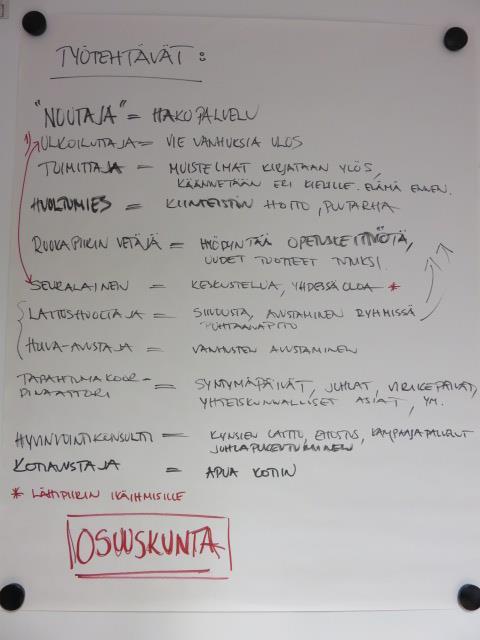 TYÖTEHTÄVÄT:
"NOUTAJA" = HAKOPALVELU
1) ULKOILUTTAJA = VIE VANHUKSIA ULOS
TOIMITTAJA = MUISTELMAT KIRJATAAN YLÖS,
KÄÄNNETÄÄN ERI KIELILLE. ELÄMÄ ENNEN.
HUOLTOMIES = KIINTEISTÖN HOITO, PUUTARHA
RUOKAPIIRIN VETÄJÄ = HYÖDYNTÄÄ OPETUSKEITTIÖTÄ,
UUDET TUOTTEET TUTUKSI.
SEURALAINEN = KESKUSTELUA, YHDESSÄOLOA *
LAITOSHUOLTAJA = SIIVOUSTA, AVUSTAMINEN RYHMISSÄ
PUHTAANAPITO
HOIVA-AVUSTAJA = VANHUSTEN AVUSTAMINEN
TAPAHTUMAKOOR-
DINAATTORI = SYNTYMÄPÄIVÄT, JUHLAT, VIRIKEPÄIVÄT,
YHTEISKUNNALLISET ASIAT, YM.
HYVINVOINTIKONSULTTI = KYNSIEN LAITTO, EHOSTUS, KAMPAAJAPALVELUT
JUHLAPUKEUTUMINEN
KOTIAVUSTAJA = APUA KOTIIN
* LÄHIPIIRIN IKÄIHMISILLE
OSUUSKUNTA